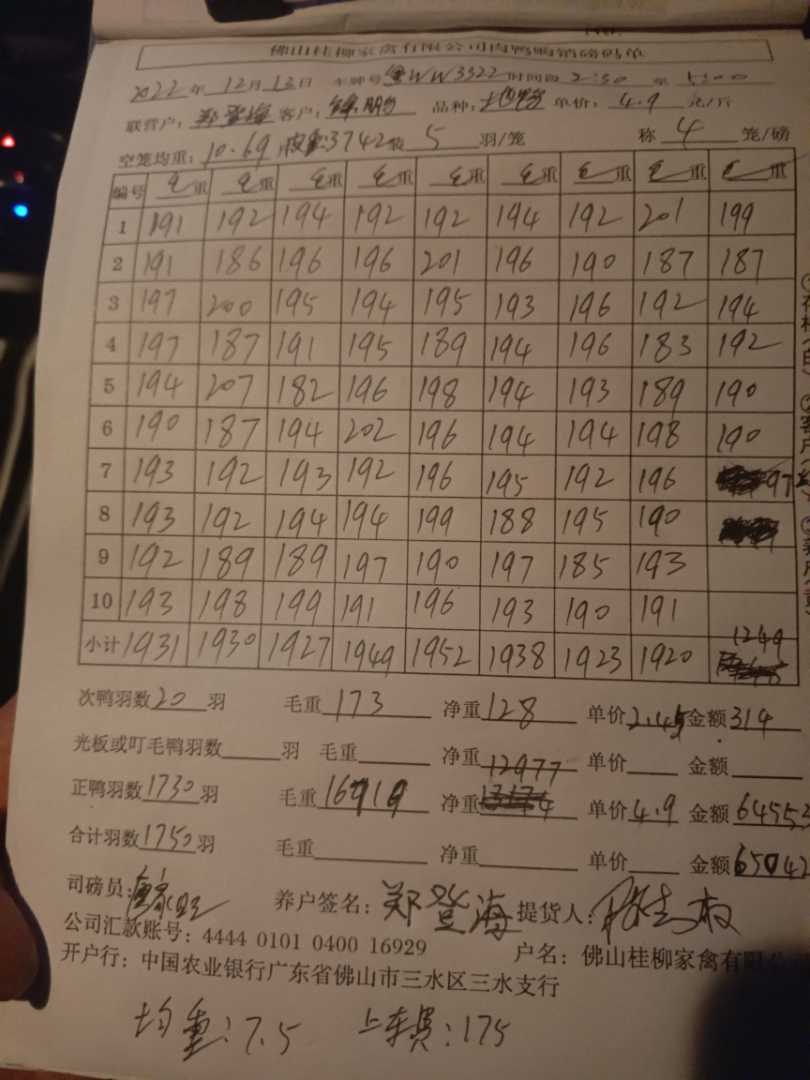 佛山桂柳家禽有限公司肉鸭购销磅码单
2022年 12月13日 车牌号 WW3322 时间段 2:30 至 5:00
联营户: 郑登海 客户: 品种: 单价: 4.9 元/斤
空笼均重: 10.69 皮重:3742 装 5 羽/笼 称 4 笼/磅
编号 毛重 毛重 毛重 毛重 毛重 毛重 毛重 毛重 毛重
1 191 192 194 192 192 194 192 201 199
2 191 186 196 196 201 196 190 187 187
3 197 200 195 194 195 193 196 192 194
4 197 187 191 195 189 194 196 183 192
5 194 207 182 196 198 194 193 189 190
6 190 187 194 202 196 194 194 198 190
7 193 192 193 192 196 195 192 196 97
8 193 192 194 194 199 188 195 190
9 192 189 189 197 190 197 185 193
10 193 198 199 191 196 193 190 191
小计 1931 1930 1927 1949 1952 1938 1923 1920 1249
次鸭羽数 20 羽 毛重 173 净重 128 单价 2.45 金额 314
光板或叮毛鸭羽数 羽 毛重 净重 单价 金额
正鸭羽数 1730 羽 毛重 16719 净重 12977 单价 4.9 金额 64553
合计羽数 1750 羽 毛重 净重 单价 金额 65042
司磅员: 养户签名: 郑登海 提货人:
公司汇款账号: 4444 0101 0400 16929 户名: 佛山桂柳家禽有限公
开户行: 中国农业银行广东省佛山市三水区三水支行
均重: 7.5 上车费: 175